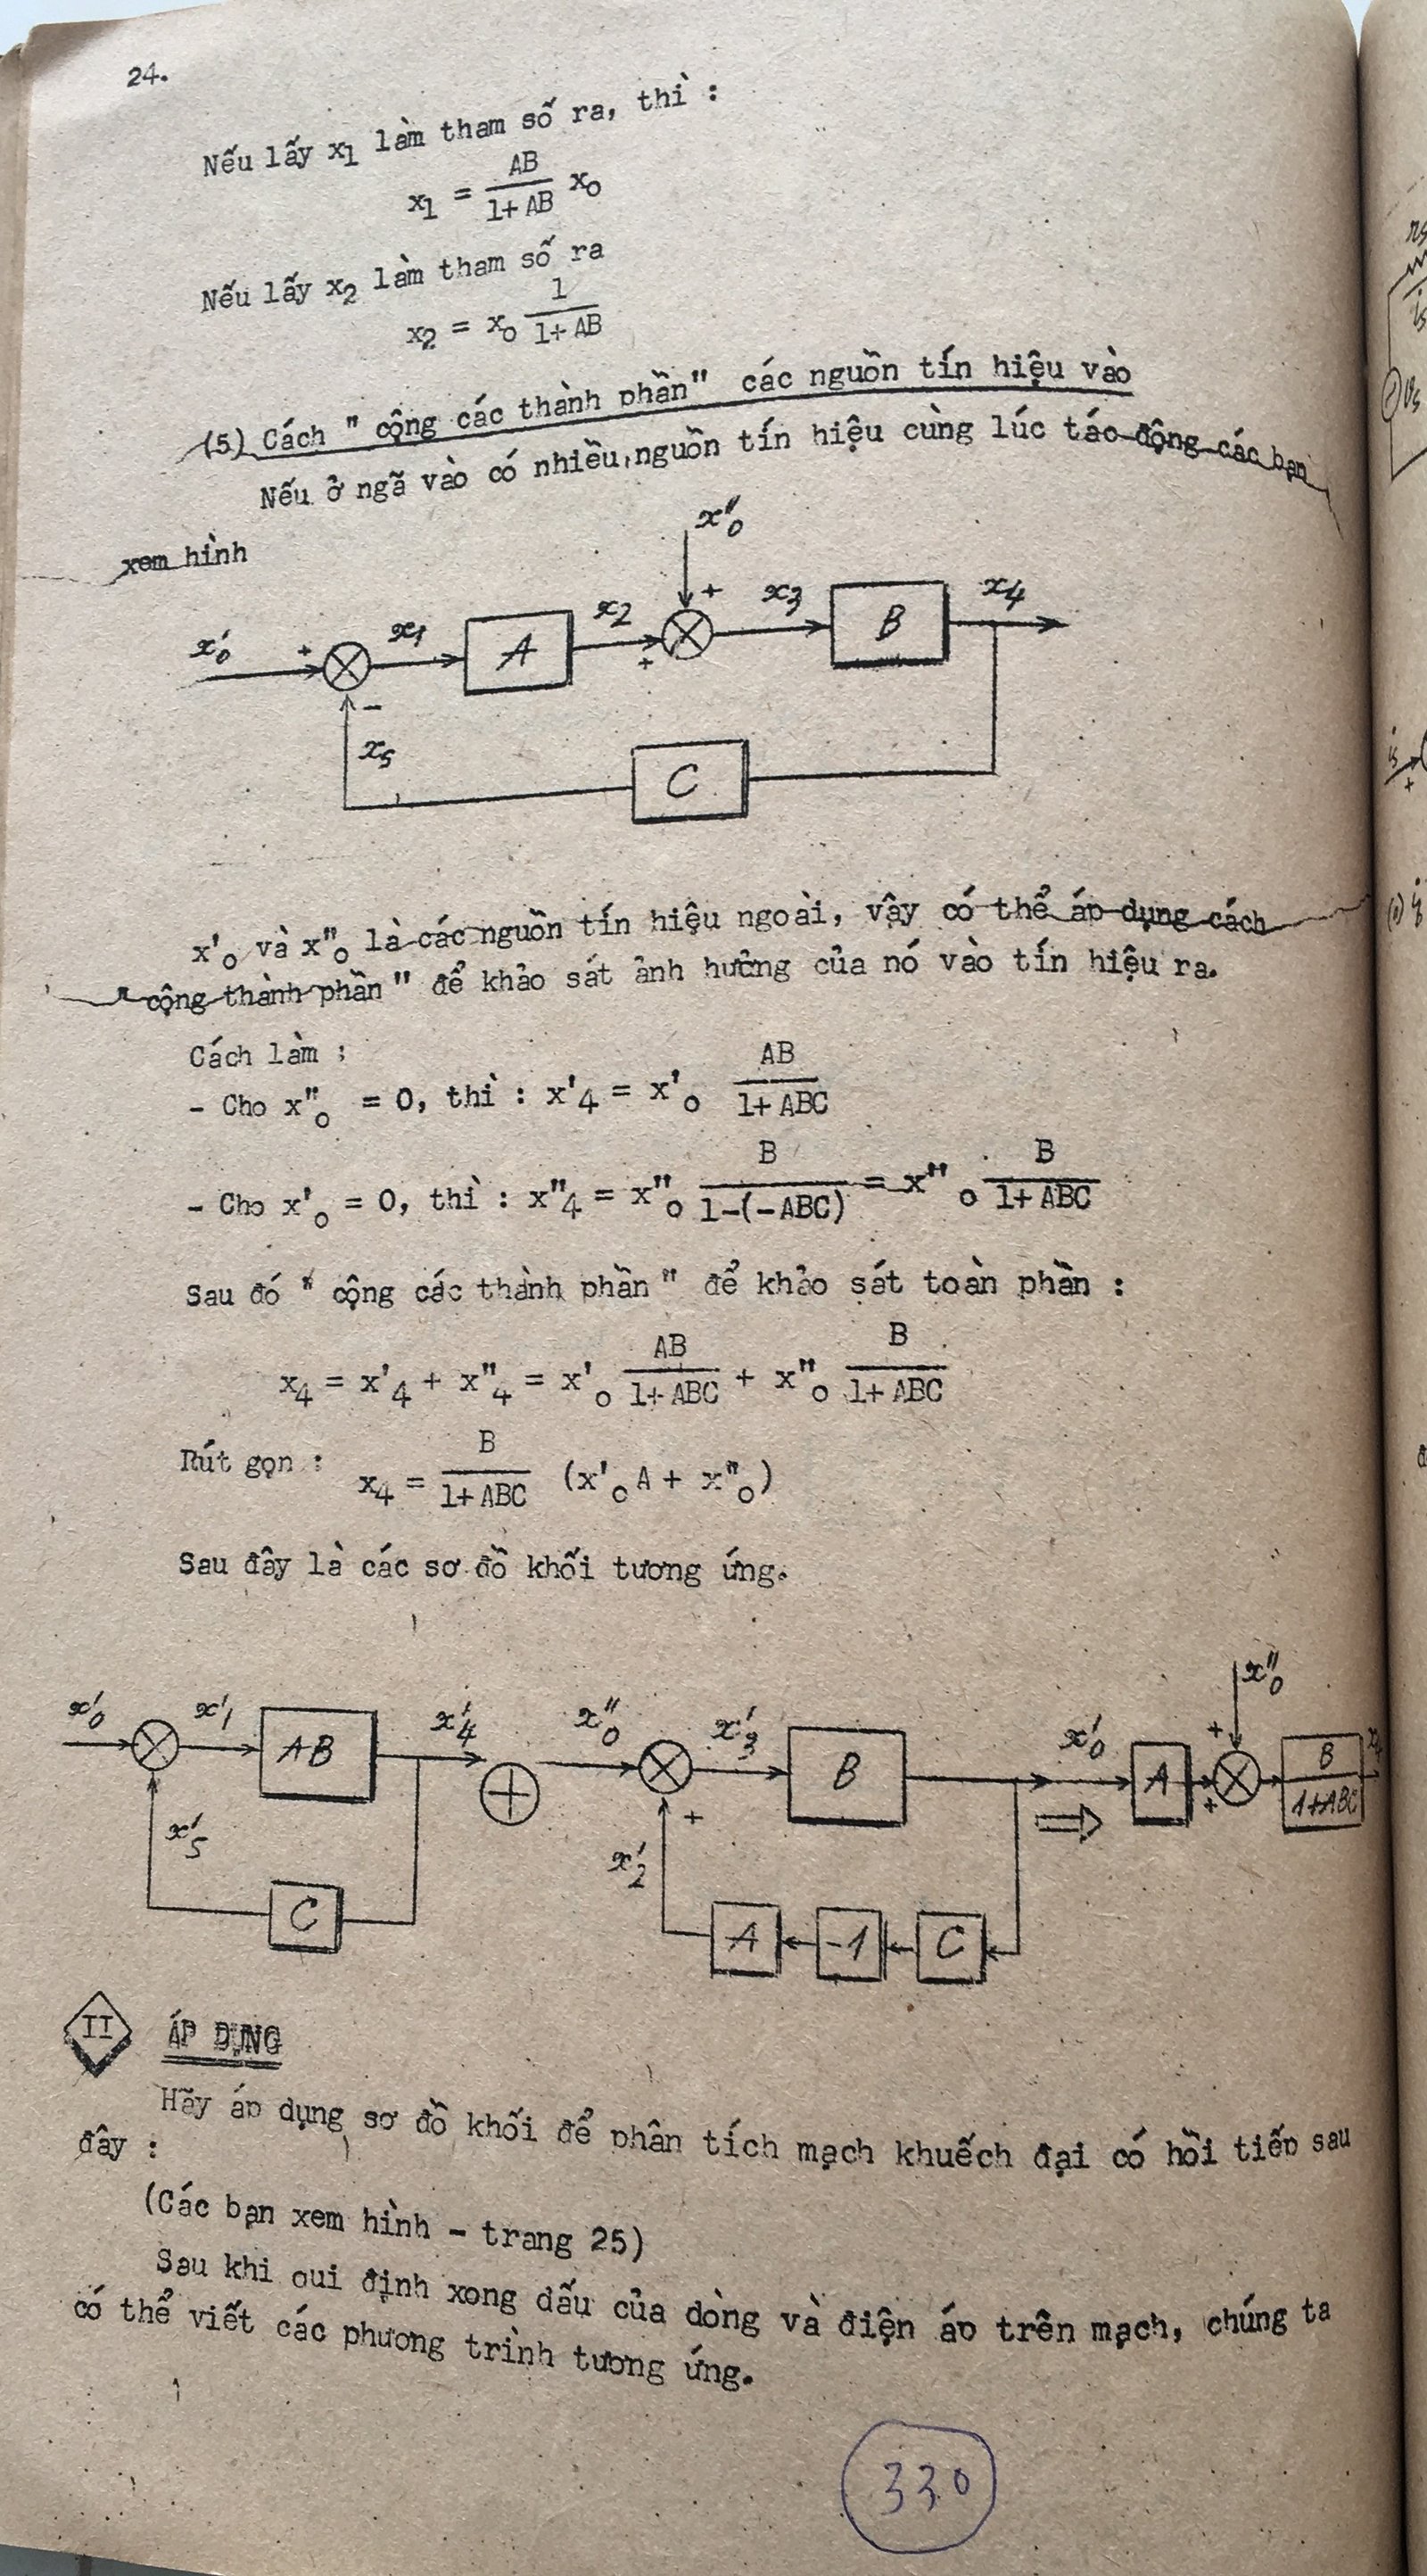 24.
Nếu lấy x1 làm tham số ra, thì :
x1 = AB / 1+ AB xo
Nếu lấy x2 làm tham số ra
x2 = xo 1 / 1+ AB
(5) Cách " cộng các thành phần" các nguồn tín hiệu vào
Nếu ở ngã vào có nhiều nguồn tín hiệu cùng lúc tác động các bạn
xem hình
x"o
x'o + x1 A x2 + + x3 B x4
- x5 C
x'o và x"o là các nguồn tín hiệu ngoài, vậy có thể áp dụng cách
" cộng thành phần" để khảo sát ảnh hưởng của nó vào tín hiệu ra.
Cách làm :
- Cho x"o = 0, thì : x'4 = x'o AB / 1+ ABC
- Cho x'o = 0, thì : x"4 = x"o B / 1-(-ABC) = x"o B / 1+ ABC
Sau đó " cộng các thành phần " để khảo sát toàn phần :
x4 = x'4 + x"4 = x'o AB / 1+ ABC + x"o B / 1+ ABC
Rút gọn : x4 = B / 1+ ABC (x'o A + x"o)
Sau đây là các sơ đồ khối tương ứng.
x"o
x'o x'1 AB x'4 x"o x'3 B x'o A + + B / 1+ABC
x'5 C + x'2 A -1 C
II ÁP DỤNG
Hãy áp dụng sơ đồ khối để phân tích mạch khuếch đại có hồi tiếp sau
đây :
(Các bạn xem hình - trang 25)
Sau khi qui định xong dấu của dòng và điện áp trên mạch, chúng ta
có thể viết các phương trình tương ứng.
330